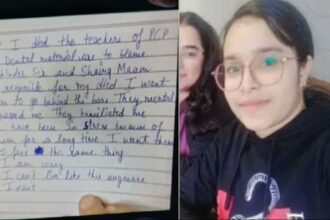 I died the teachers of PCP
Dental material are to blame
Sir and Maam
responsible for my died I want
to go behind the bars They mental
me They humiliated me
have been in stress because of
for a long time I want them
feel the same thing
I am sorry
I can't live like this anymore
I cant